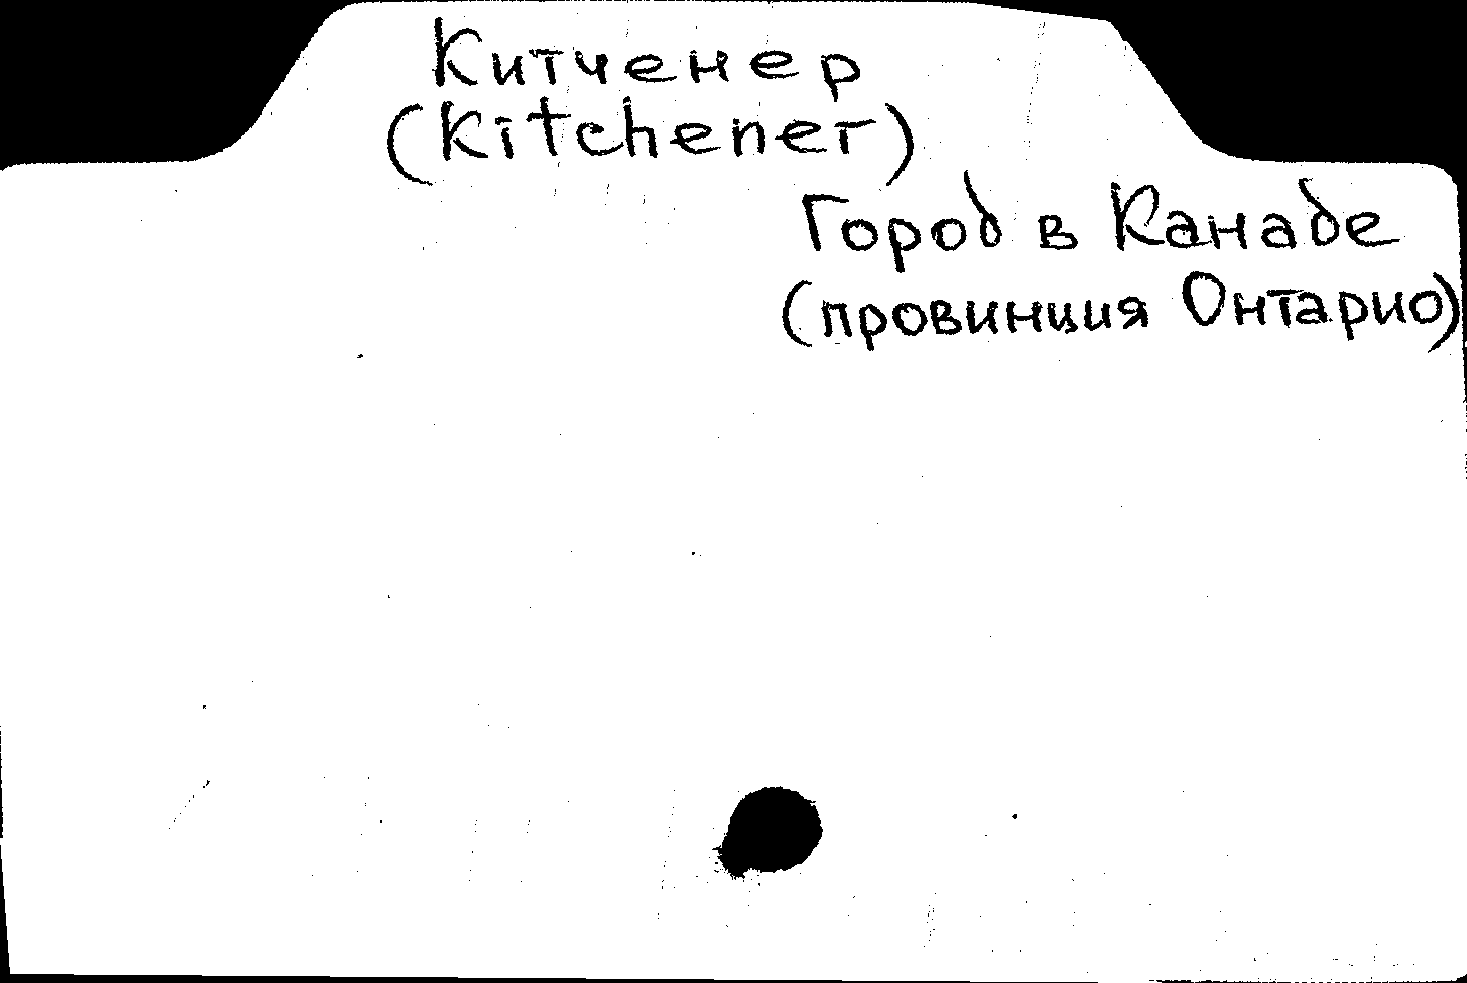 Китченер
(Kitchener)
Город в Канаде
(провинция Онтарио)